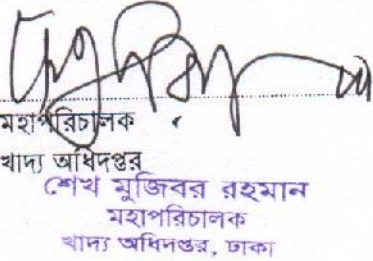 মহাপরিচালক
খাদ্য অধিদপ্তর
শেখ মুজিবর রহমান
মহাপরিচালক
খাদ্য অধিদপ্তর, ঢাকা